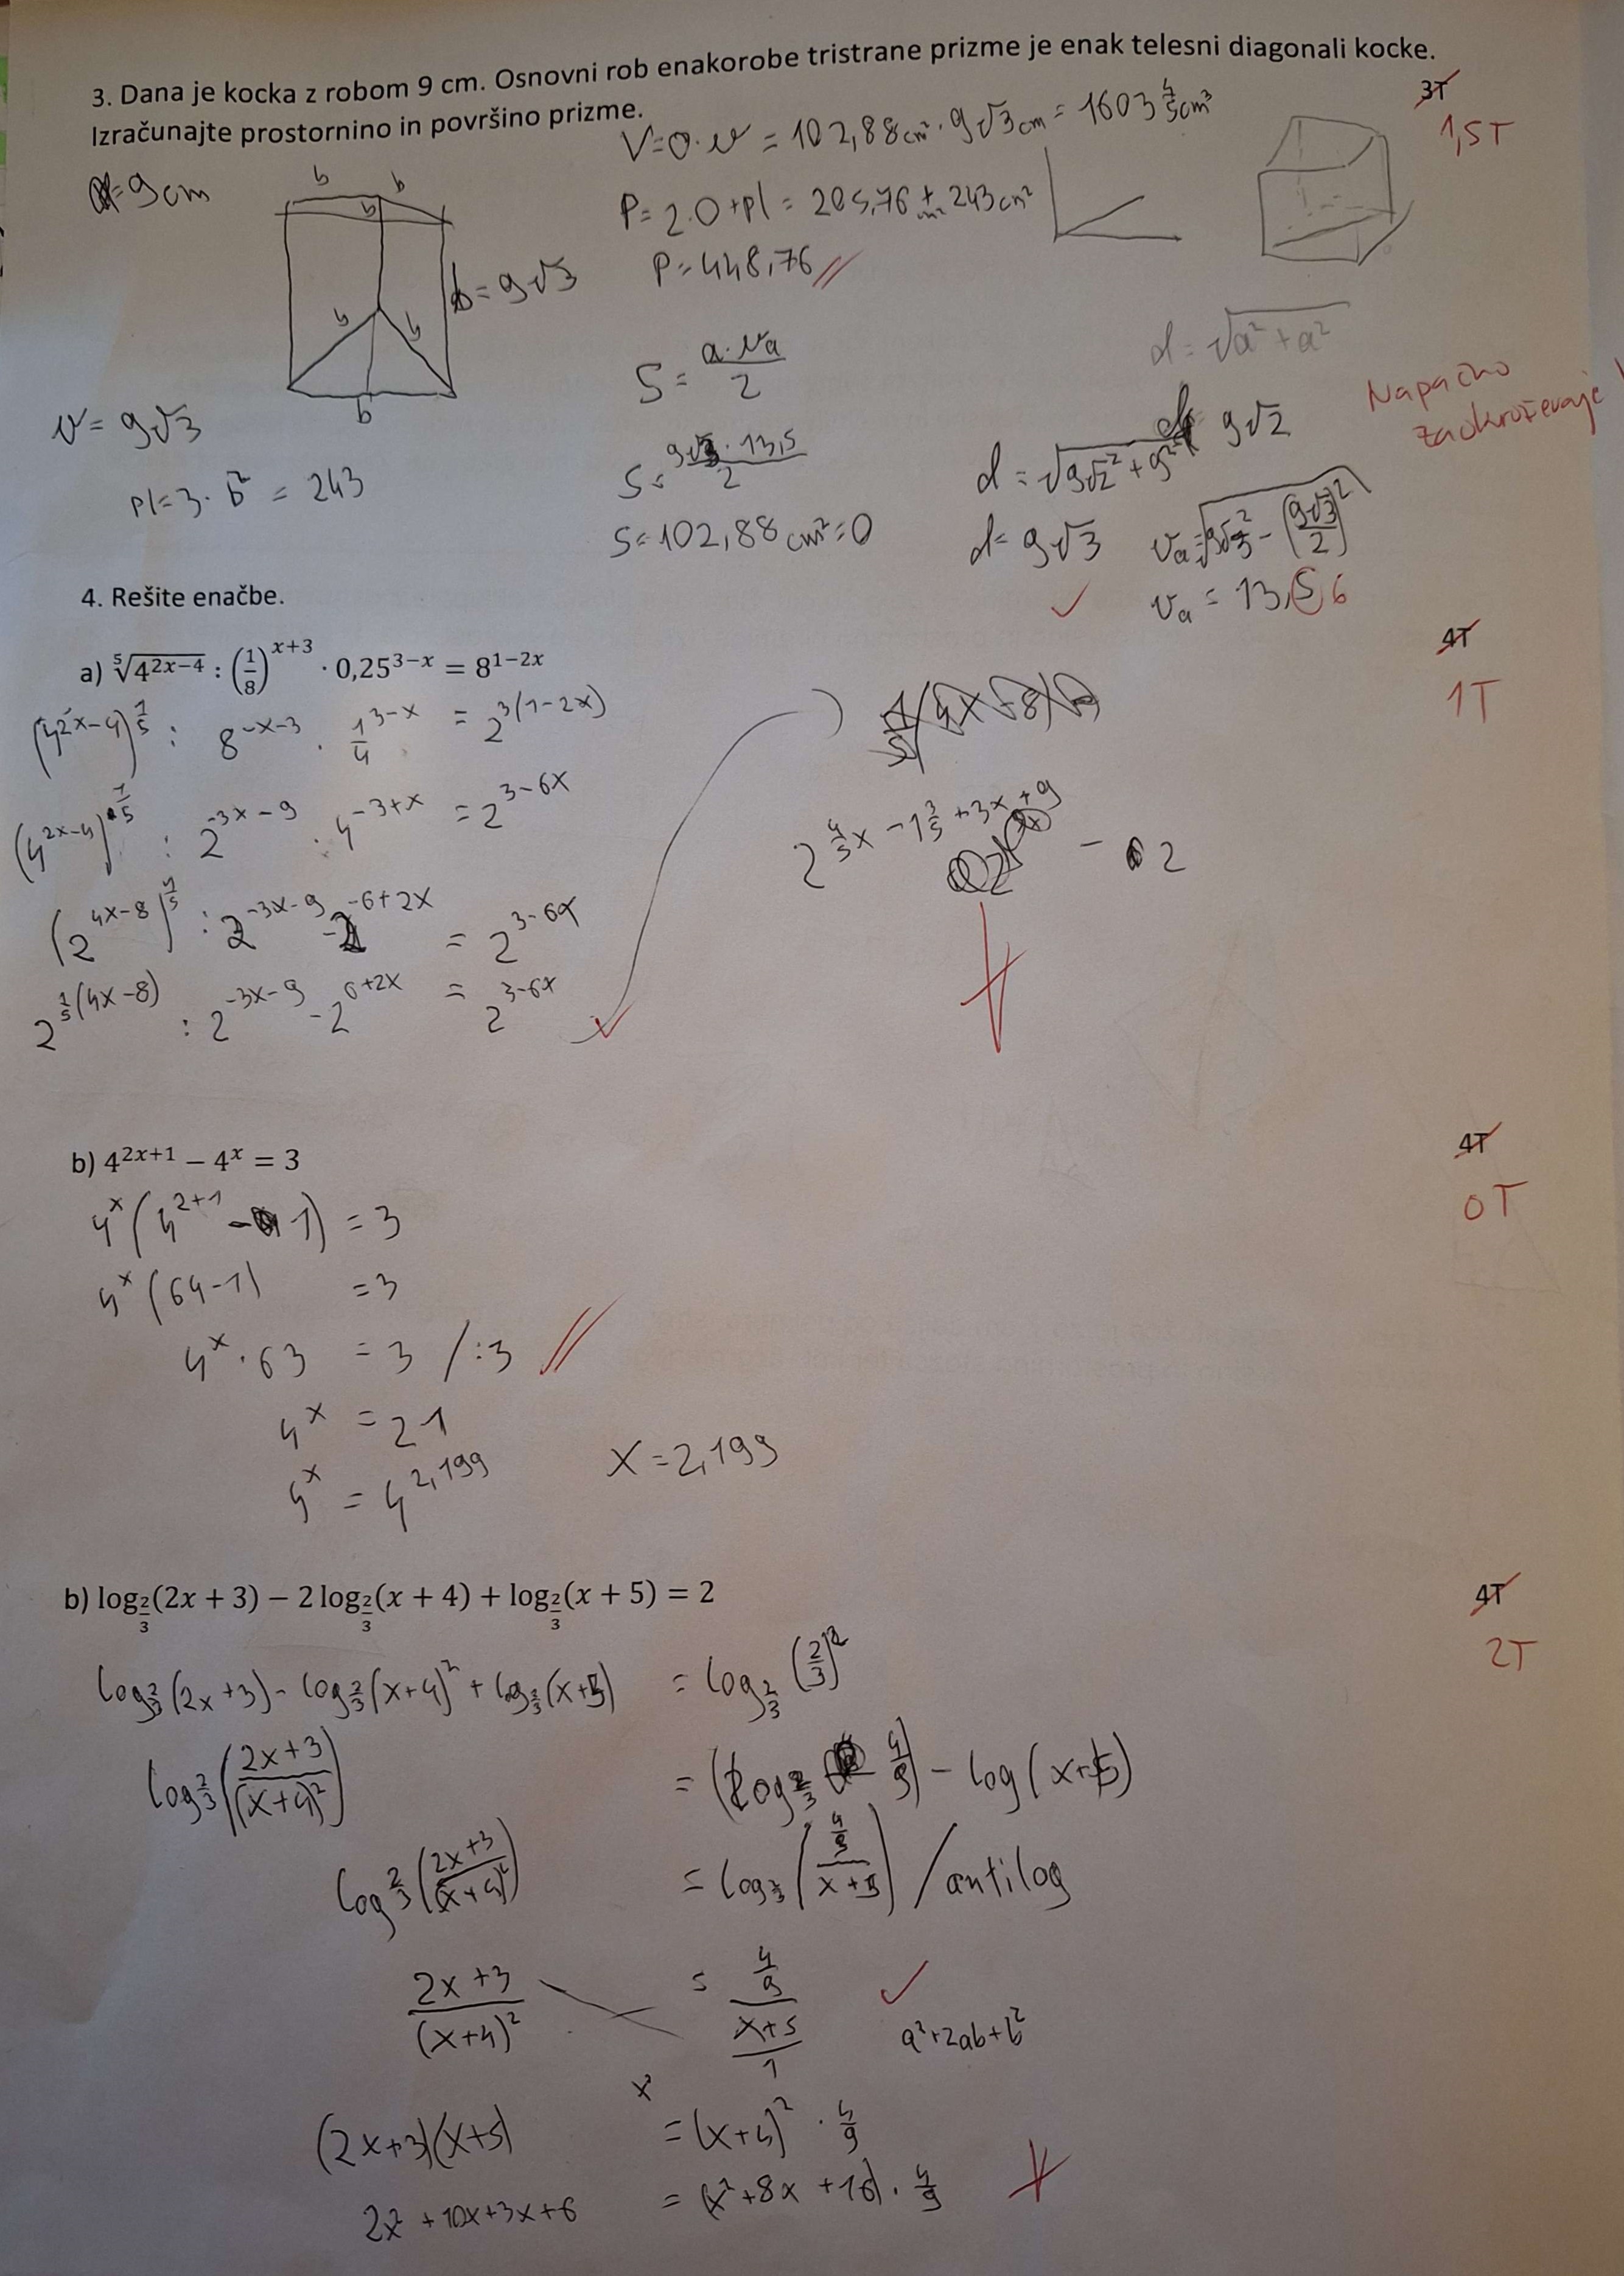 3. Dana je kocka z robom 9 cm. Osnovni rob enakorobe tristrane prizme je enak telesni diagonali kocke.
Izračunajte prostornino in površino prizme.
3T
1,5T
a=9cm
b b
b
V=O·v = 102,88cm²·9√3cm = 1603 4/5cm³
P=2·O+pl = 205,76 + 243cm²
P=448,76
b=9√3
b b
b
v=9√3
pl=3·b² = 243
S= a·va/2
S= 9√3·13,5/2
S=102,88cm²=O
d=√a²+a²
9√2
d=√9√2²+9²
d=9√3
va=√9√3²-(9√3/2)²
va=13,5 6
Napačno
zaokroževanje!
4. Rešite enačbe.
a) ⁵√4^(2x−4) : (1/8)^(x+3) · 0,25^(3−x) = 8^(1−2x)
4T
1T
(4^(2x-4))^(1/5) : 8^(-x-3) · 1/4^(3-x) = 2^(3(1-2x))
(4^(2x-4))^(1/5) : 2^(-3x-9) · 4^(-3+x) = 2^(3-6x)
(2^(4x-8))^(1/5) : 2^(-3x-9) · 2^(-6+2x) = 2^(3-6x)
2^(1/5(4x-8)) : 2^(-3x-9) - 2^(6+2x) = 2^(3-6x)
2^(4/5x - 1 3/5 + 3x + 9) - 2
b) 4^(2x+1) − 4^x = 3
4T
0T
4^x(4^(2+1) - 1) = 3
4^x(64-1) = 3
4^x·63 = 3 /:3
4^x = 21
4^x = 4^2,199
x=2,199
b) log_(2/3)(2x + 3) − 2 log_(2/3)(x + 4) + log_(2/3)(x + 5) = 2
4T
2T
log_(2/3)(2x+3) - log_(2/3)(x+4)² + log_(2/3)(x+5) = log_(2/3)(2/3)²
log_(2/3)((2x+3)/(x+4)²) = (log_(2/3) 4/9) - log(x+5)
log_(2/3)((2x+3)/(x+4)²) = log_(2/3)((4/9)/(x+5)) /antilog
(2x+3)/(x+4)² = (4/9)/((x+5)/1)
a²+2ab+b²
(2x+3)(x+5) = (x+4)²·4/9
2x²+10x+3x+6 = (x²+8x+16)·4/9